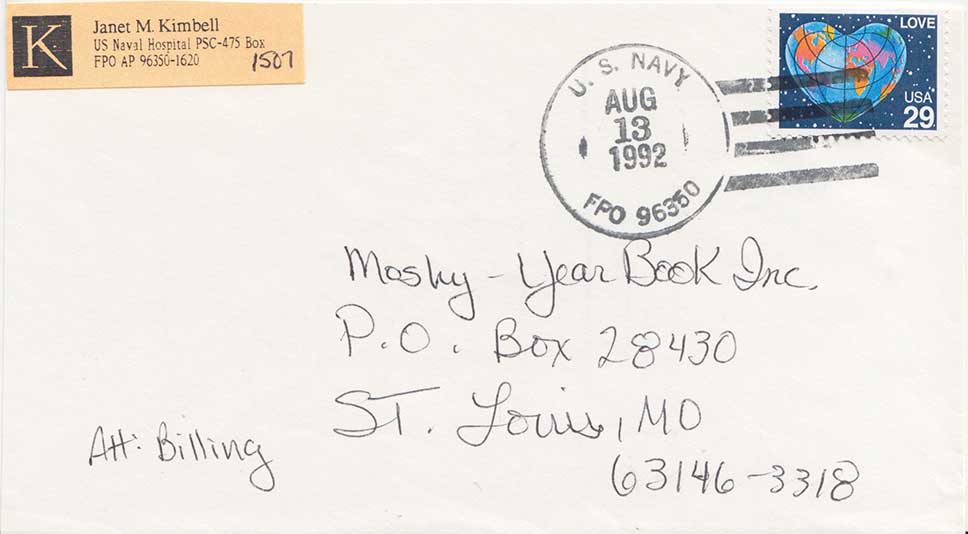 K
Janet M. Kimbell
US Naval Hospital PSC-475 Box
FPO AP 96350-1620 1507
U. S. NAVY
AUG
13
1992
FPO 96350
LOVE
USA
29
Mosby - Year Book Inc.
P.O. Box 28430
St. Louis, MO
63146-3318
Att: Billing